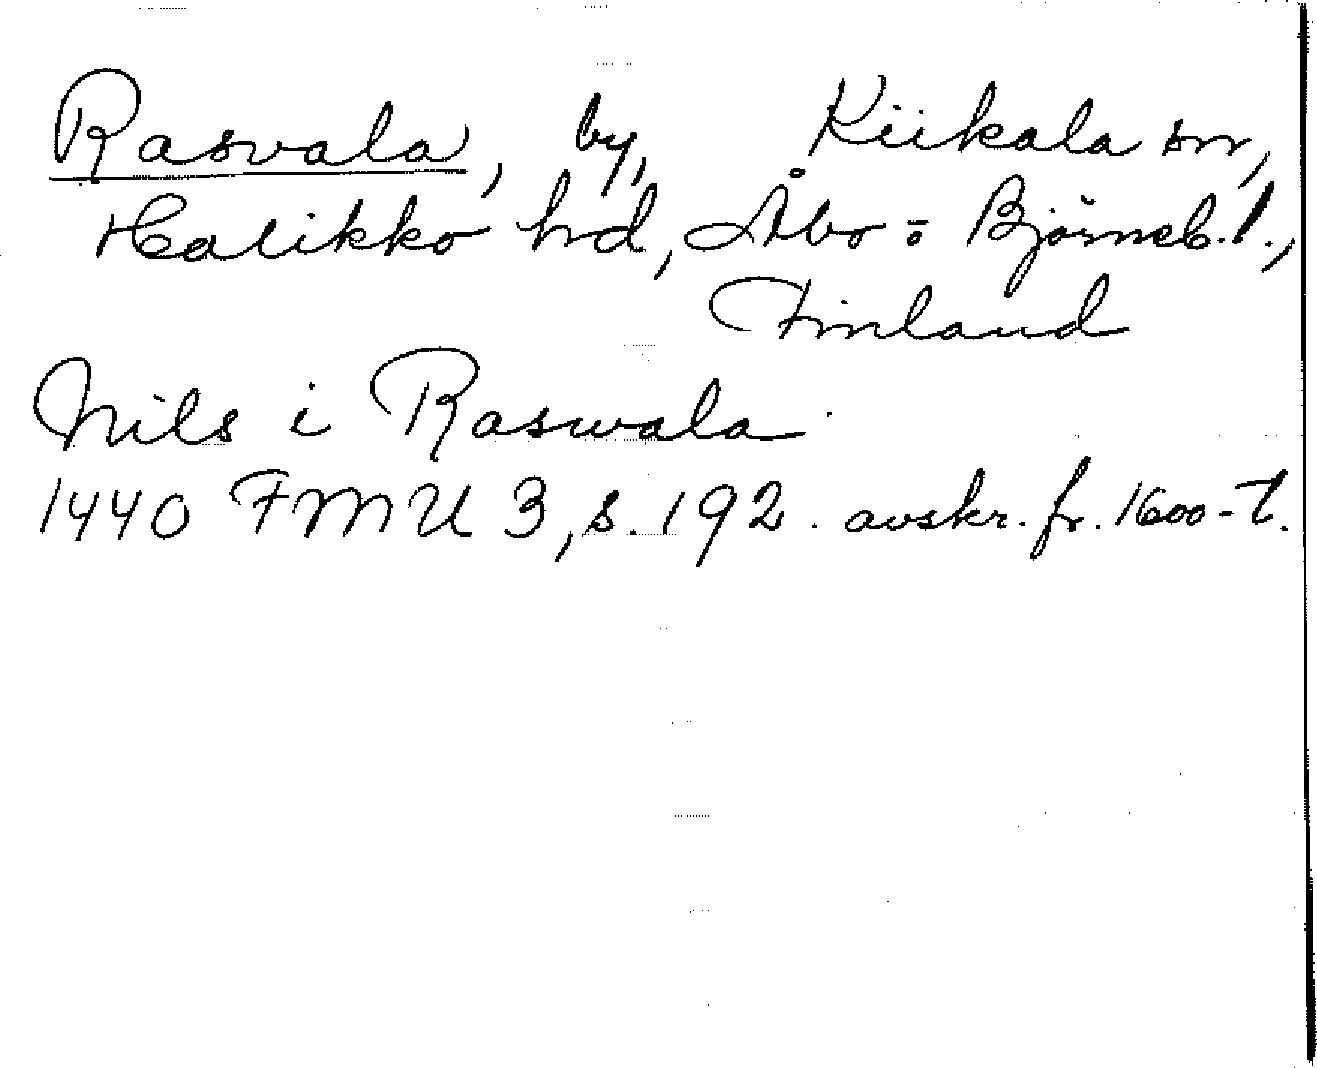 Rasvala, by, Kiikala sn,
Halikko hd, Åbo = Björneb. l.,
Finland
Nils i Raswala
1440 FMU 3, s. 192. avskr. fr. 1600-t.